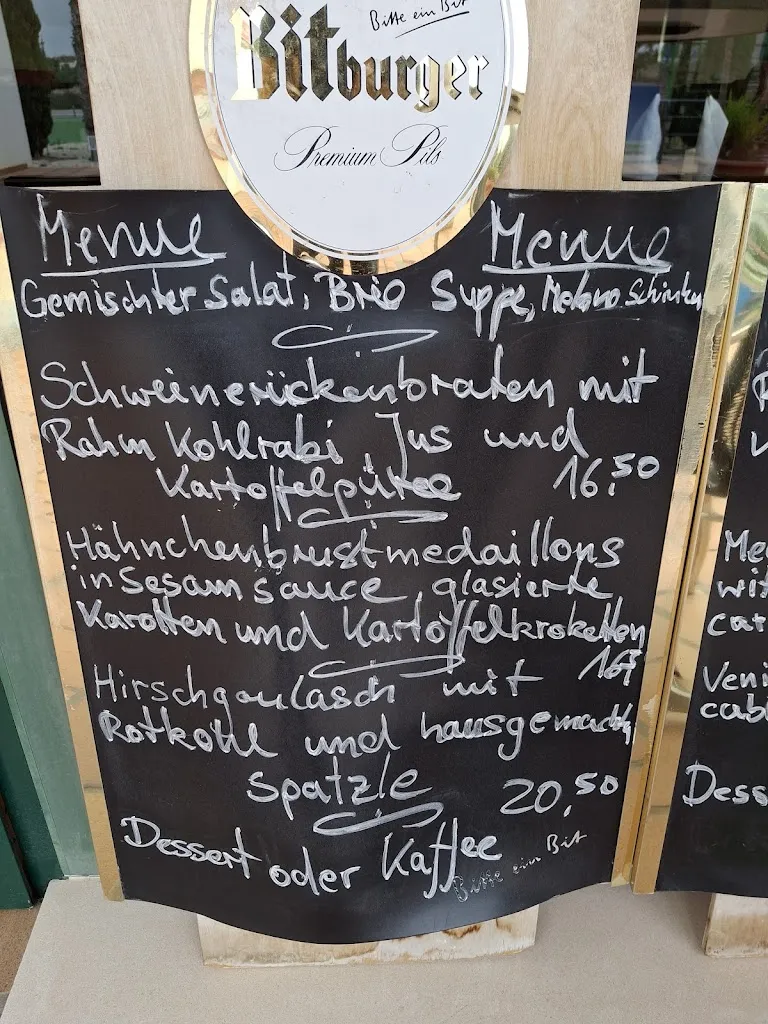 Bitte ein Bit
Bitburger
Premium Pils
Menue Menue
Gemischter Salat, Brio Suppe, Melone Schinken
Schweinerückenbraten mit
Rahm Kohlrabi, Jus und
Kartoffelpüree 16,50
Hähnchenbrustmedaillons
in Sesamsauce, glasierte
Karotten und Kartoffelkroketten
Hirschgoulasch mit
Rotkohl und hausgemachte
Spatzle 20,50
Dessert oder Kaffee
Bitte ein Bit
Veni
cabi
Dess